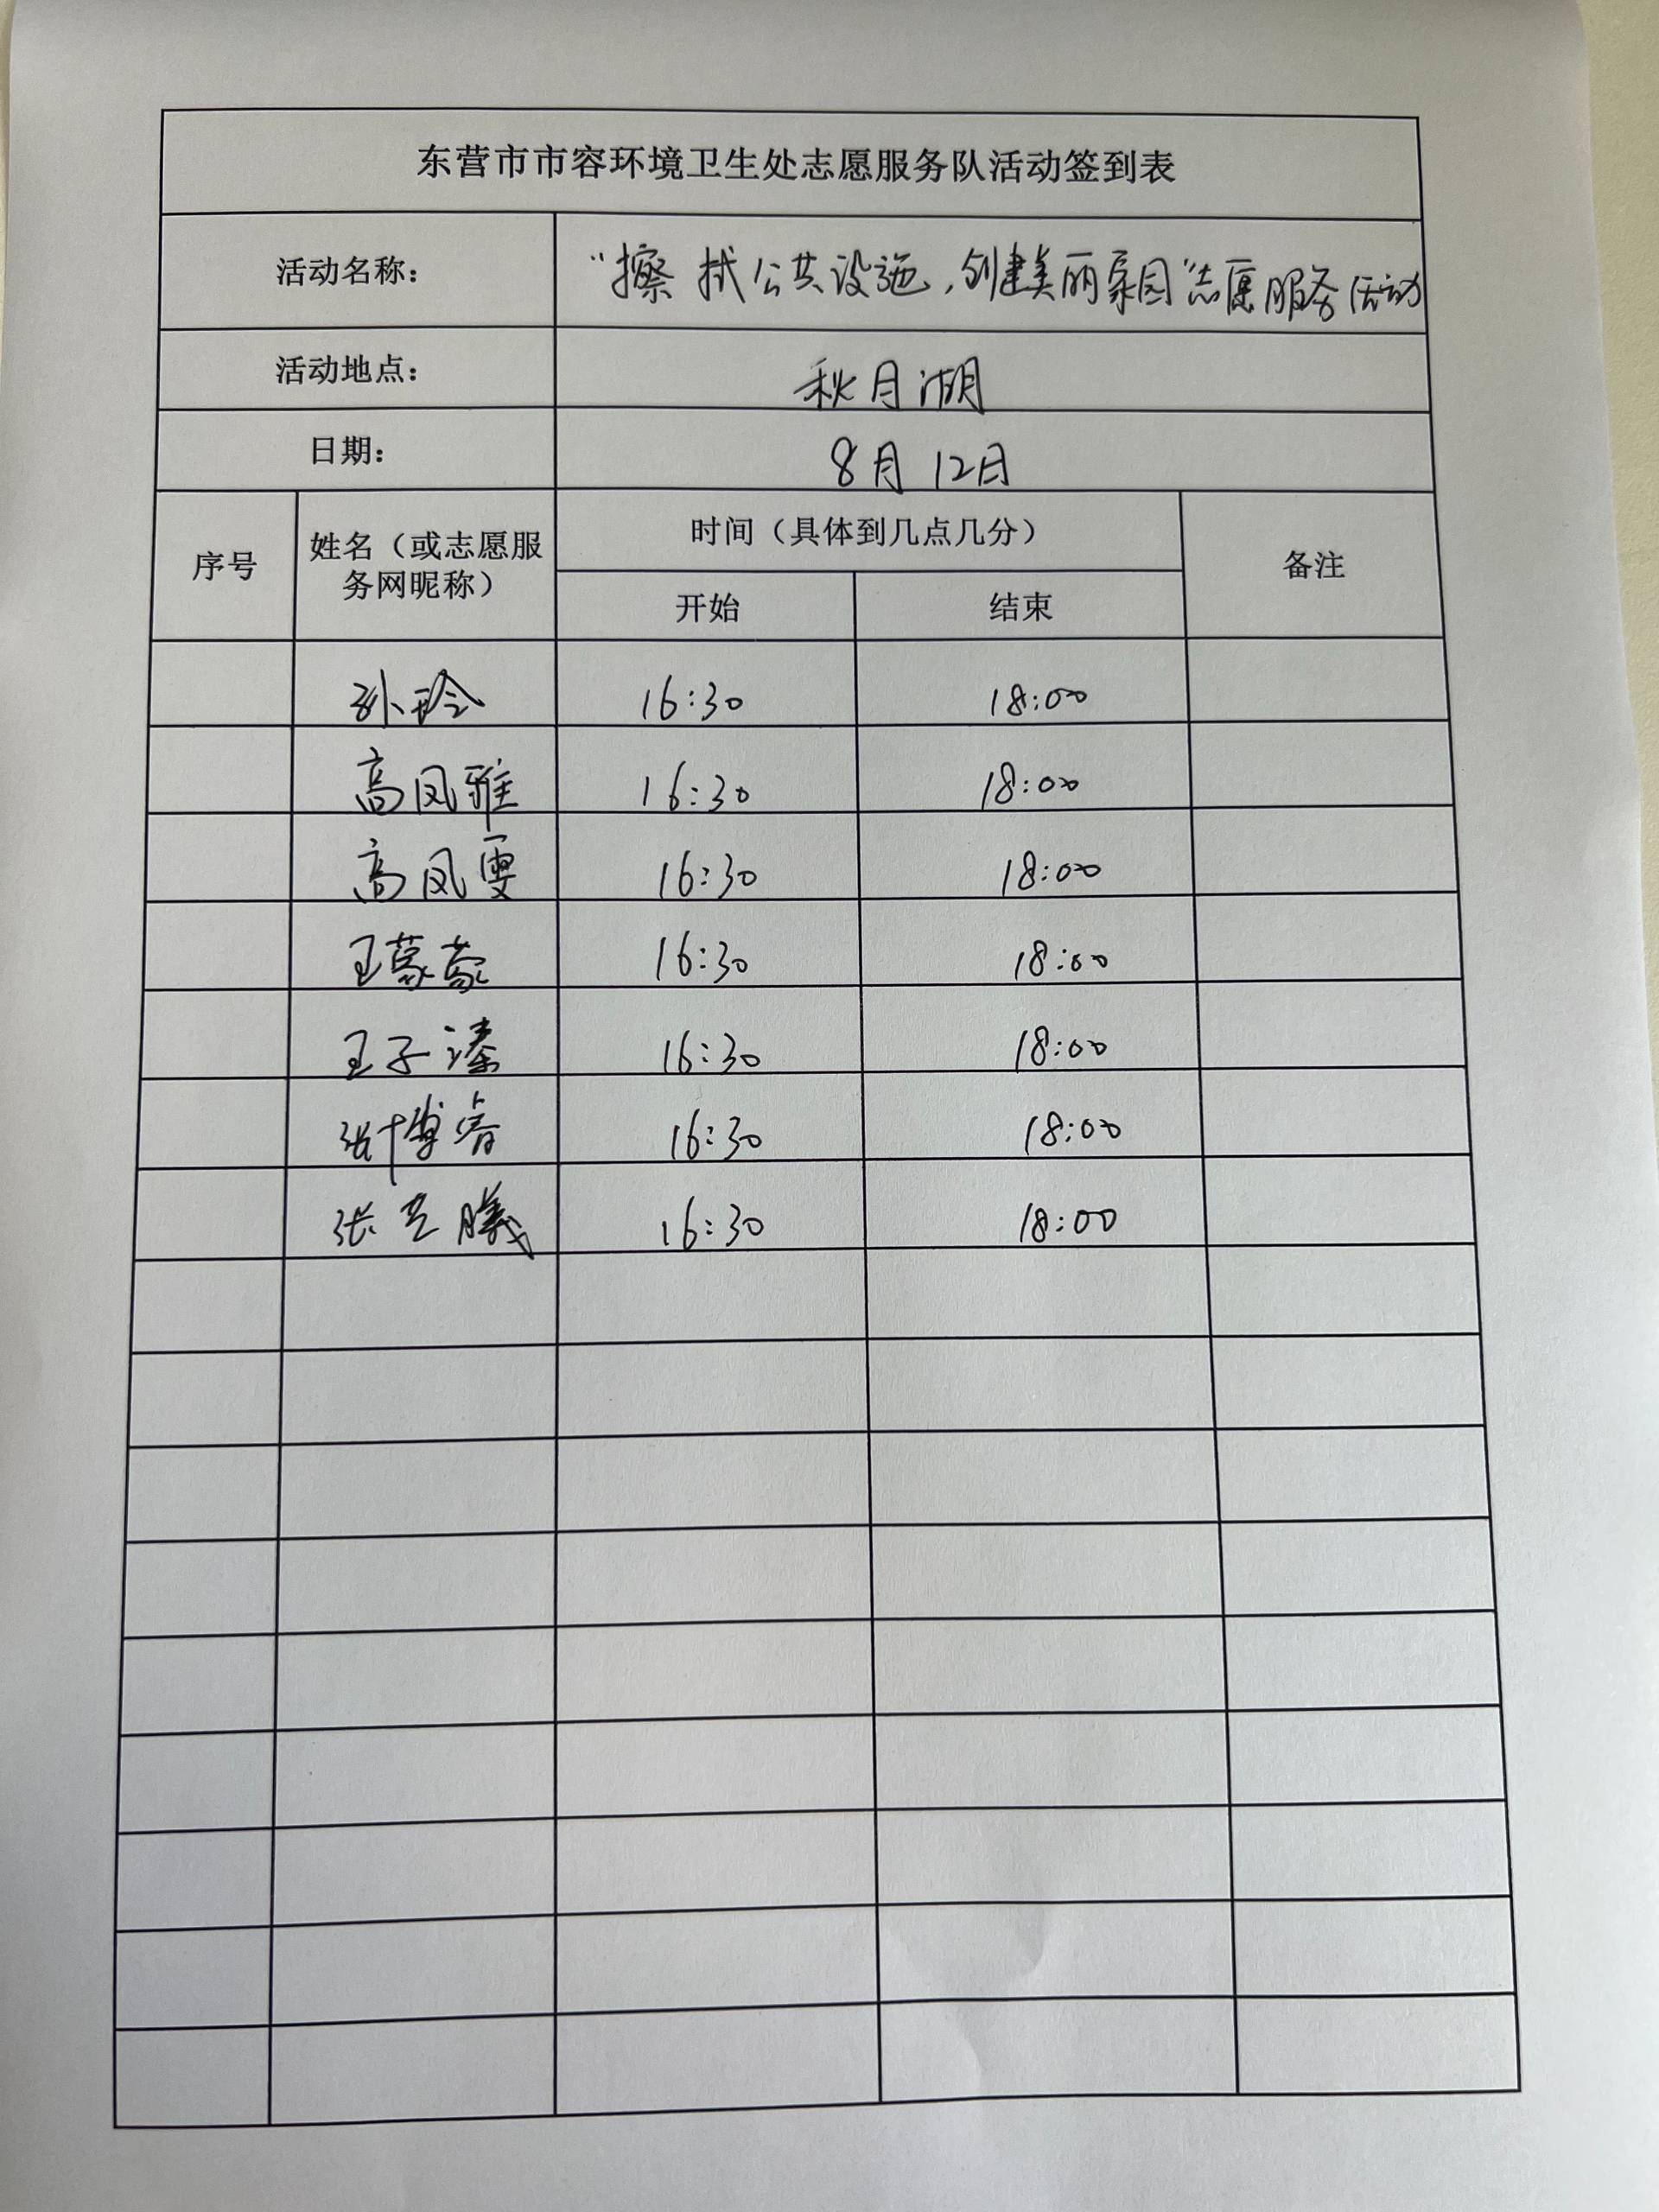 东营市市容环境卫生处志愿服务队活动签到表
活动名称： “擦拭公共设施，创建美丽家园”志愿服务活动
活动地点： 秋月湖
日期： 8月12日
序号 姓名（或志愿服务网昵称） 时间（具体到几点几分） 备注
开始 结束
孙玲 16:30 18:00
高凤雅 16:30 18:00
高凤雯 16:30 18:00
王蒙蒙 16:30 18:00
王子溱 16:30 18:00
张博睿 16:30 18:00
张 16:30 18:00